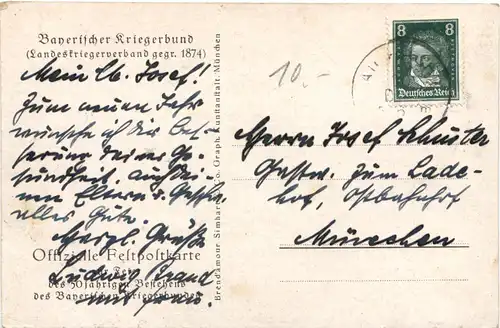 Bayerischer Kriegerbund
(Landeskriegerverband gegr. 1874)
Mein lb. Josef!
Zum neuen Jahr
wünsche ich dir Bes-
serung deiner Ge-
sundheit, auch dei-
nen Eltern u. Geschw.
alles Gute.
Herzl. Grüße
Ludwig Brand
und Frau.
Offizielle Festpostkarte
des 50jährigen Bestehens
des Bayerischen Kriegerbundes
Brend'amour Simhart & Co. Graph. Kunstanstalt, München
10,-
8 8
Deutsches Reich
Herrn Josef Schuster
Gastw. zum Lade-
hof, Ostbahnhof
München